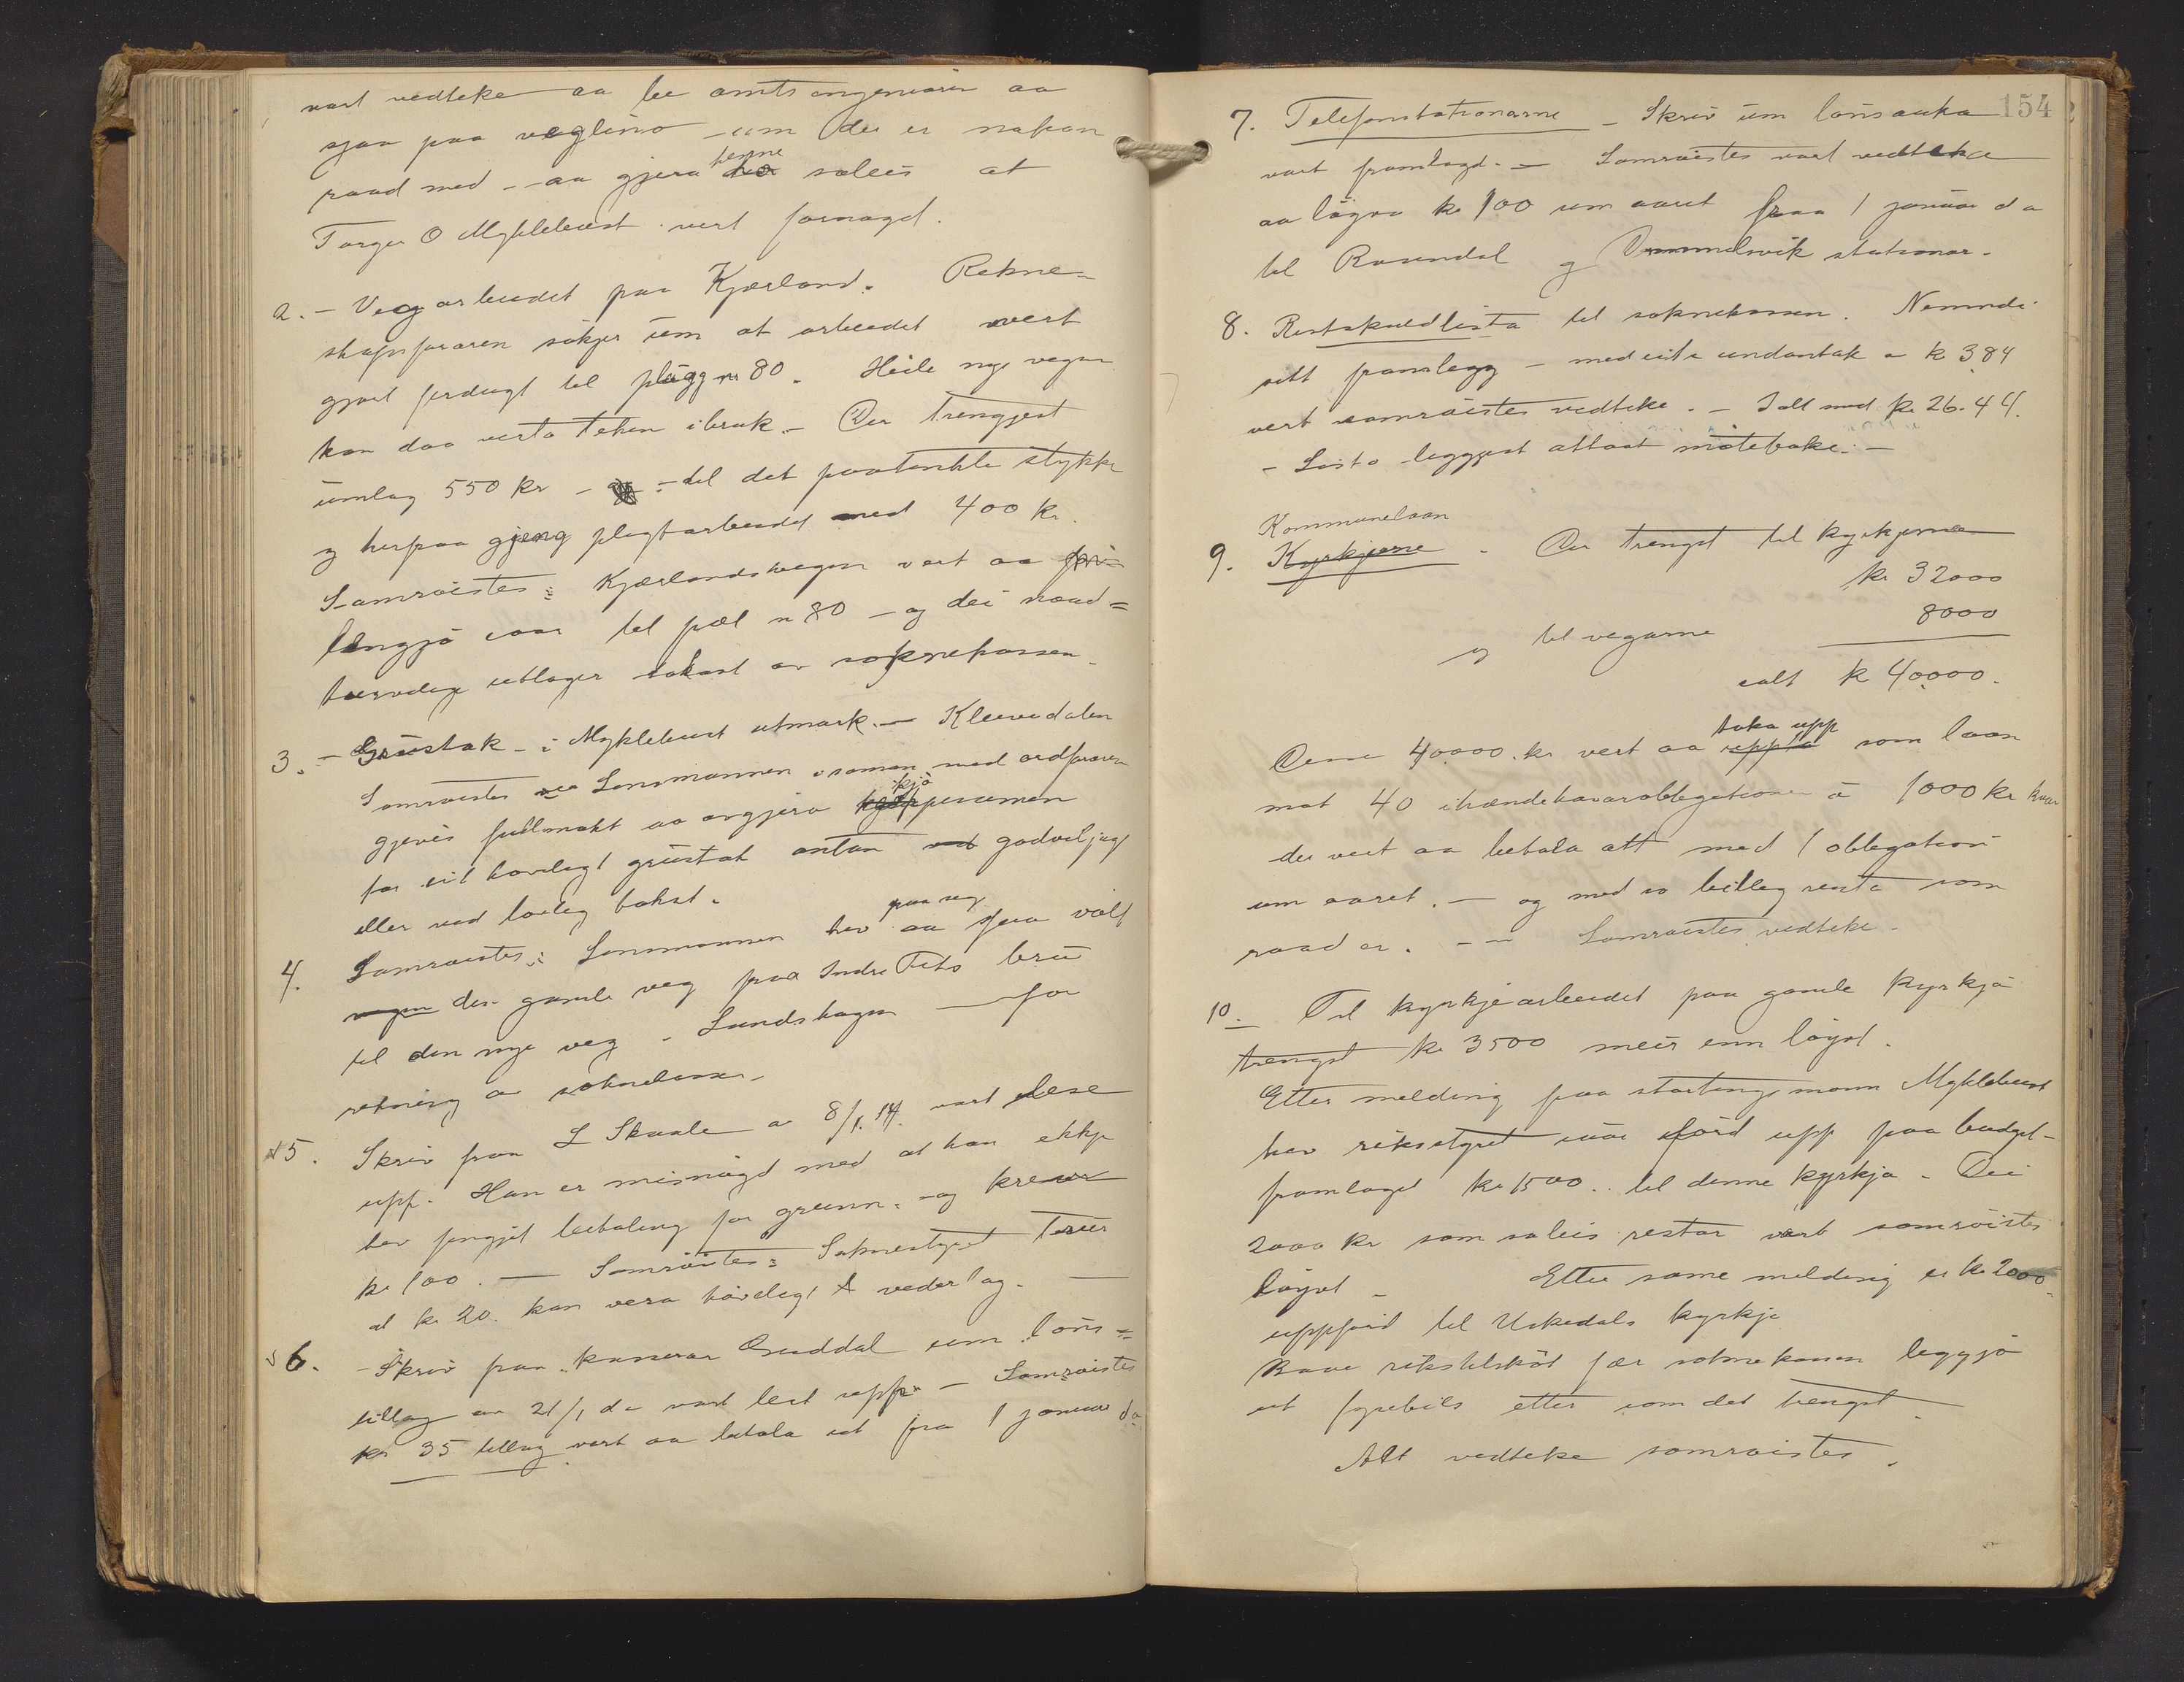 vart vedteke aa be amtsingeniøren aa
sjaa paa veglino um der er nokon
raad med - aa gjera henne soleis at
Torger O Myklebust vert fornøgd.
2. - Vegarbeidet paa Kjærland. Rekne-
skapsføraren søkjer um at arbeidet vert
gjort ferdugt til plugg nr 80. Heile nye vegen
kan daa verta teken i bruk. - Der trengjest
umlag 550 kr - til det paatenkte stykke
og herpaa gjeng pligtarbeidet med 400 kr.
Samrøistes: Kjærlandsvegen vert aa for-
lengja til pæl nr 80 - og dei naud-
turvelege utlager takast av soknekassen.
3. - Grustak - i Myklebust utmark. - Kleivedalen
Samrøistes Lensmannen isaman med ordføraren
gjeves fullmakt aa avgjera kjøpesumen
for eit høvelegt grustak antan godveljugt
eller ved lovleg takst.
4. Samrøistes: Lensmannen hev paa seg aa sjaa
den gamle veg paa Indre Tets bru
til den nye veg - Lundshagen - for
rekning av soknekassen.
5. Skriv fraa L Skaale av 8/1. 14. vart lese
upp. Han er misnøgd med at han ikkje
hev fengjet betaling for grunn - og krever
kr 100. - Samrøistes: Soknestyret trur
at kr 20. kan vera høvelegt vederlag. -
6. - Skriv fraa kasserar Guddal um løns-
tillag av 21/1 d.a vart lest upp. - Samrøistes
kr 35 tillag vert aa betala ut fra 1 januar d.a
154
7. Telefonstationarne - Skriv um lønsauka
vart framlagd. - Samrøistes vart vedteke
aa løgva kr 100 um aaret fraa 1 januar d a
til Rosendal og Ommelsvik stationar.
8. Restskuldlista til soknekassen. Nemndi
sitt framlegg - med eite undantak - kr 3,84
vert samrøistes vedteke. - I alt med kr 26.44.
- Lista leggjast attaat møteboki. -
Kommunelaan
9. Kyrkjerne - Der trengst til kyrkjerne
kr 32000
og til vegarne 8000
ialt kr 40,000.
Desse 40,000. kr vert aa taka upp som laan
mot 40 ihændehavarobligationer à 1000 kr kvar
der vert aa betala att med 1 obligation
um aaret. - og med so billeg renta som
raad er. - - Samrøistes vedteke.
10. Til kyrkjearbeidet paa gamle kyrkja
trengst kr 3500 meir enn løyvt.
Etter melding fraa stortingsmann Myklebust
hev riksstyret ført upp paa budget-
framlaget kr 1500.. til denne kyrkja. Dei
2000 kr som soleis restar vert samrøistes
løyvt - Etter same melding er kr 2000
uppførd til Uskedals kyrkje
Baae rikstilskot fær soknekassen leggja
ut fyrebils etter som det trengst.
Alt vedteke samrøistes.